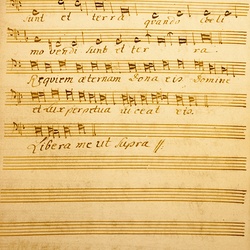 sunt et terra quando celi
movendi sunt et ter ra.
Requiem æternam Dona eis Domine
et lux perpetua luceat eis.
Libera me ut supra //.